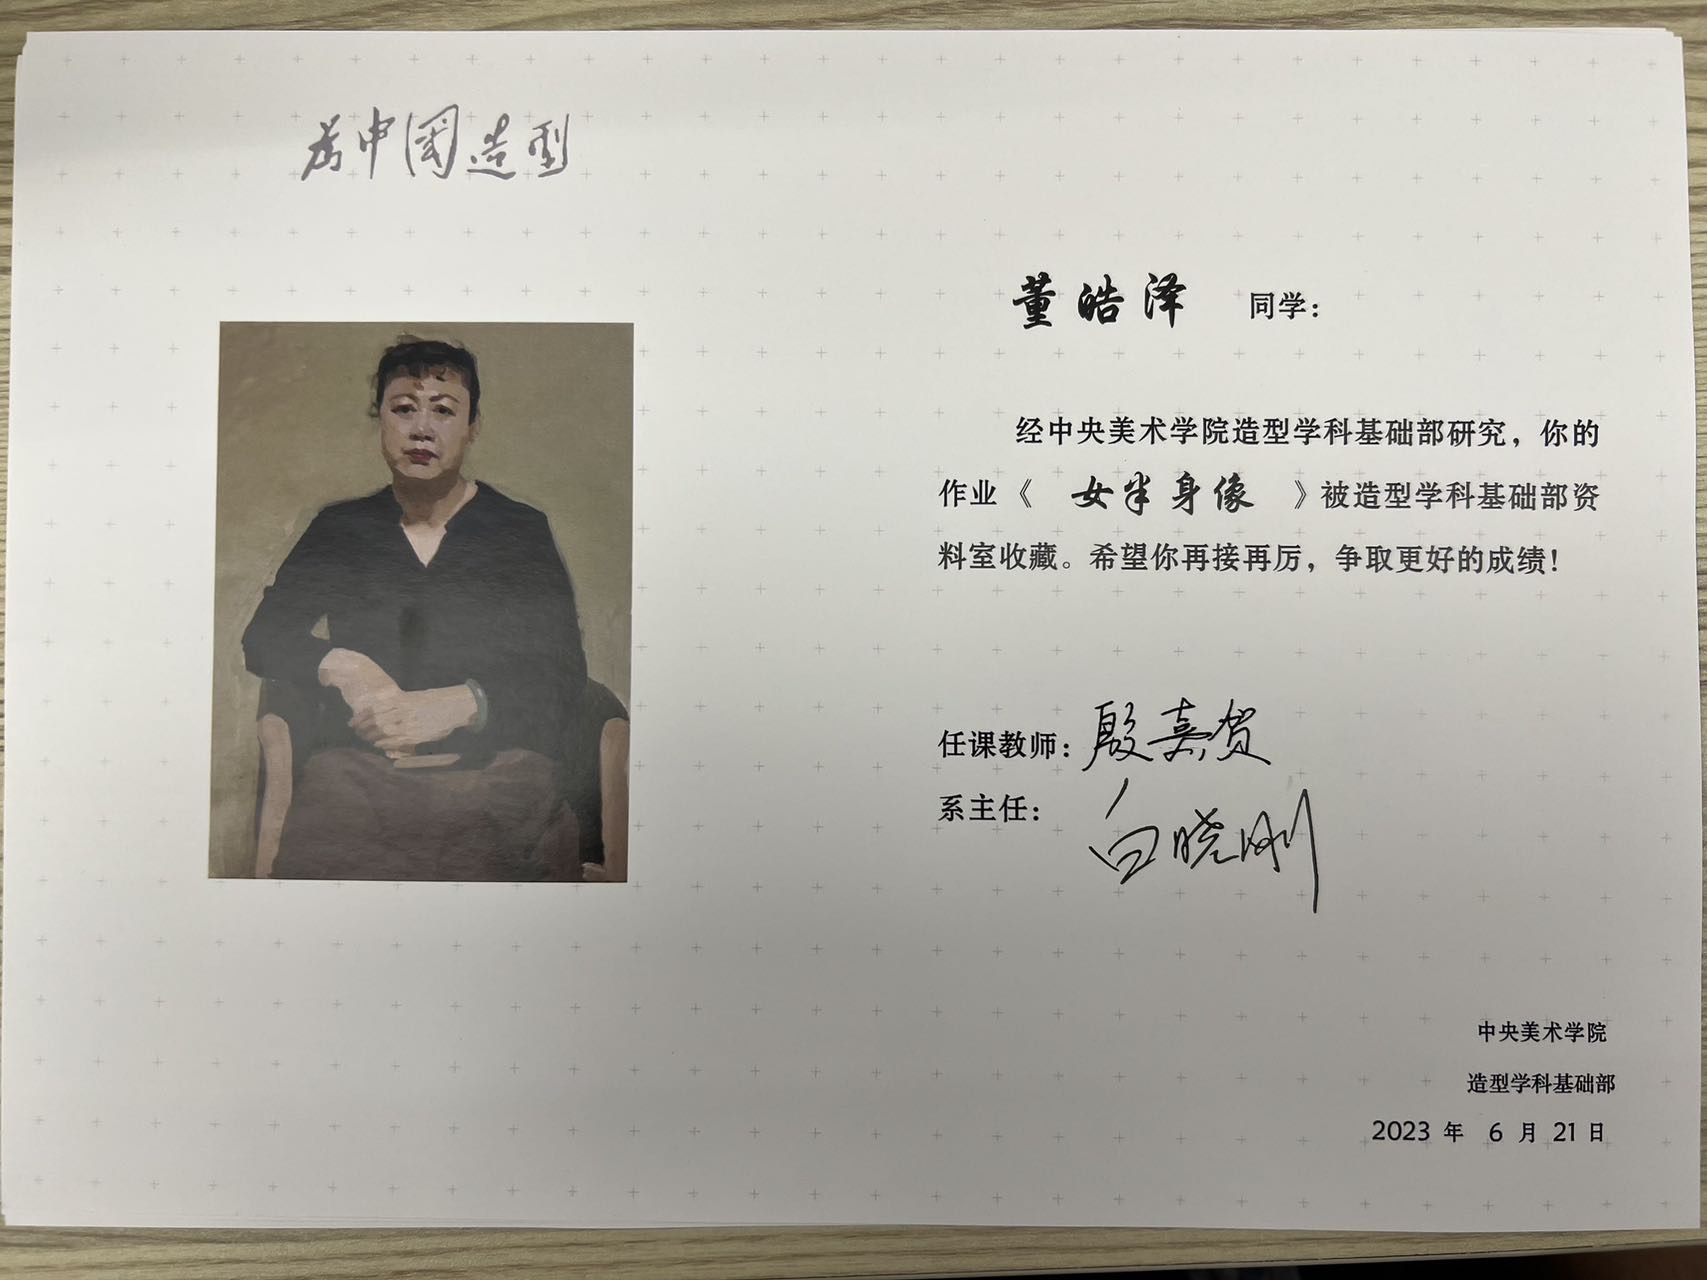 为中国造型
董皓泽 同学：
经中央美术学院造型学科基础部研究，你的
作业《 女半身像 》被造型学科基础部资
料室收藏。希望你再接再厉，争取更好的成绩！
任课教师：殷嘉贺
系主任：白晓刚
中央美术学院
造型学科基础部
2023 年 6 月 21 日